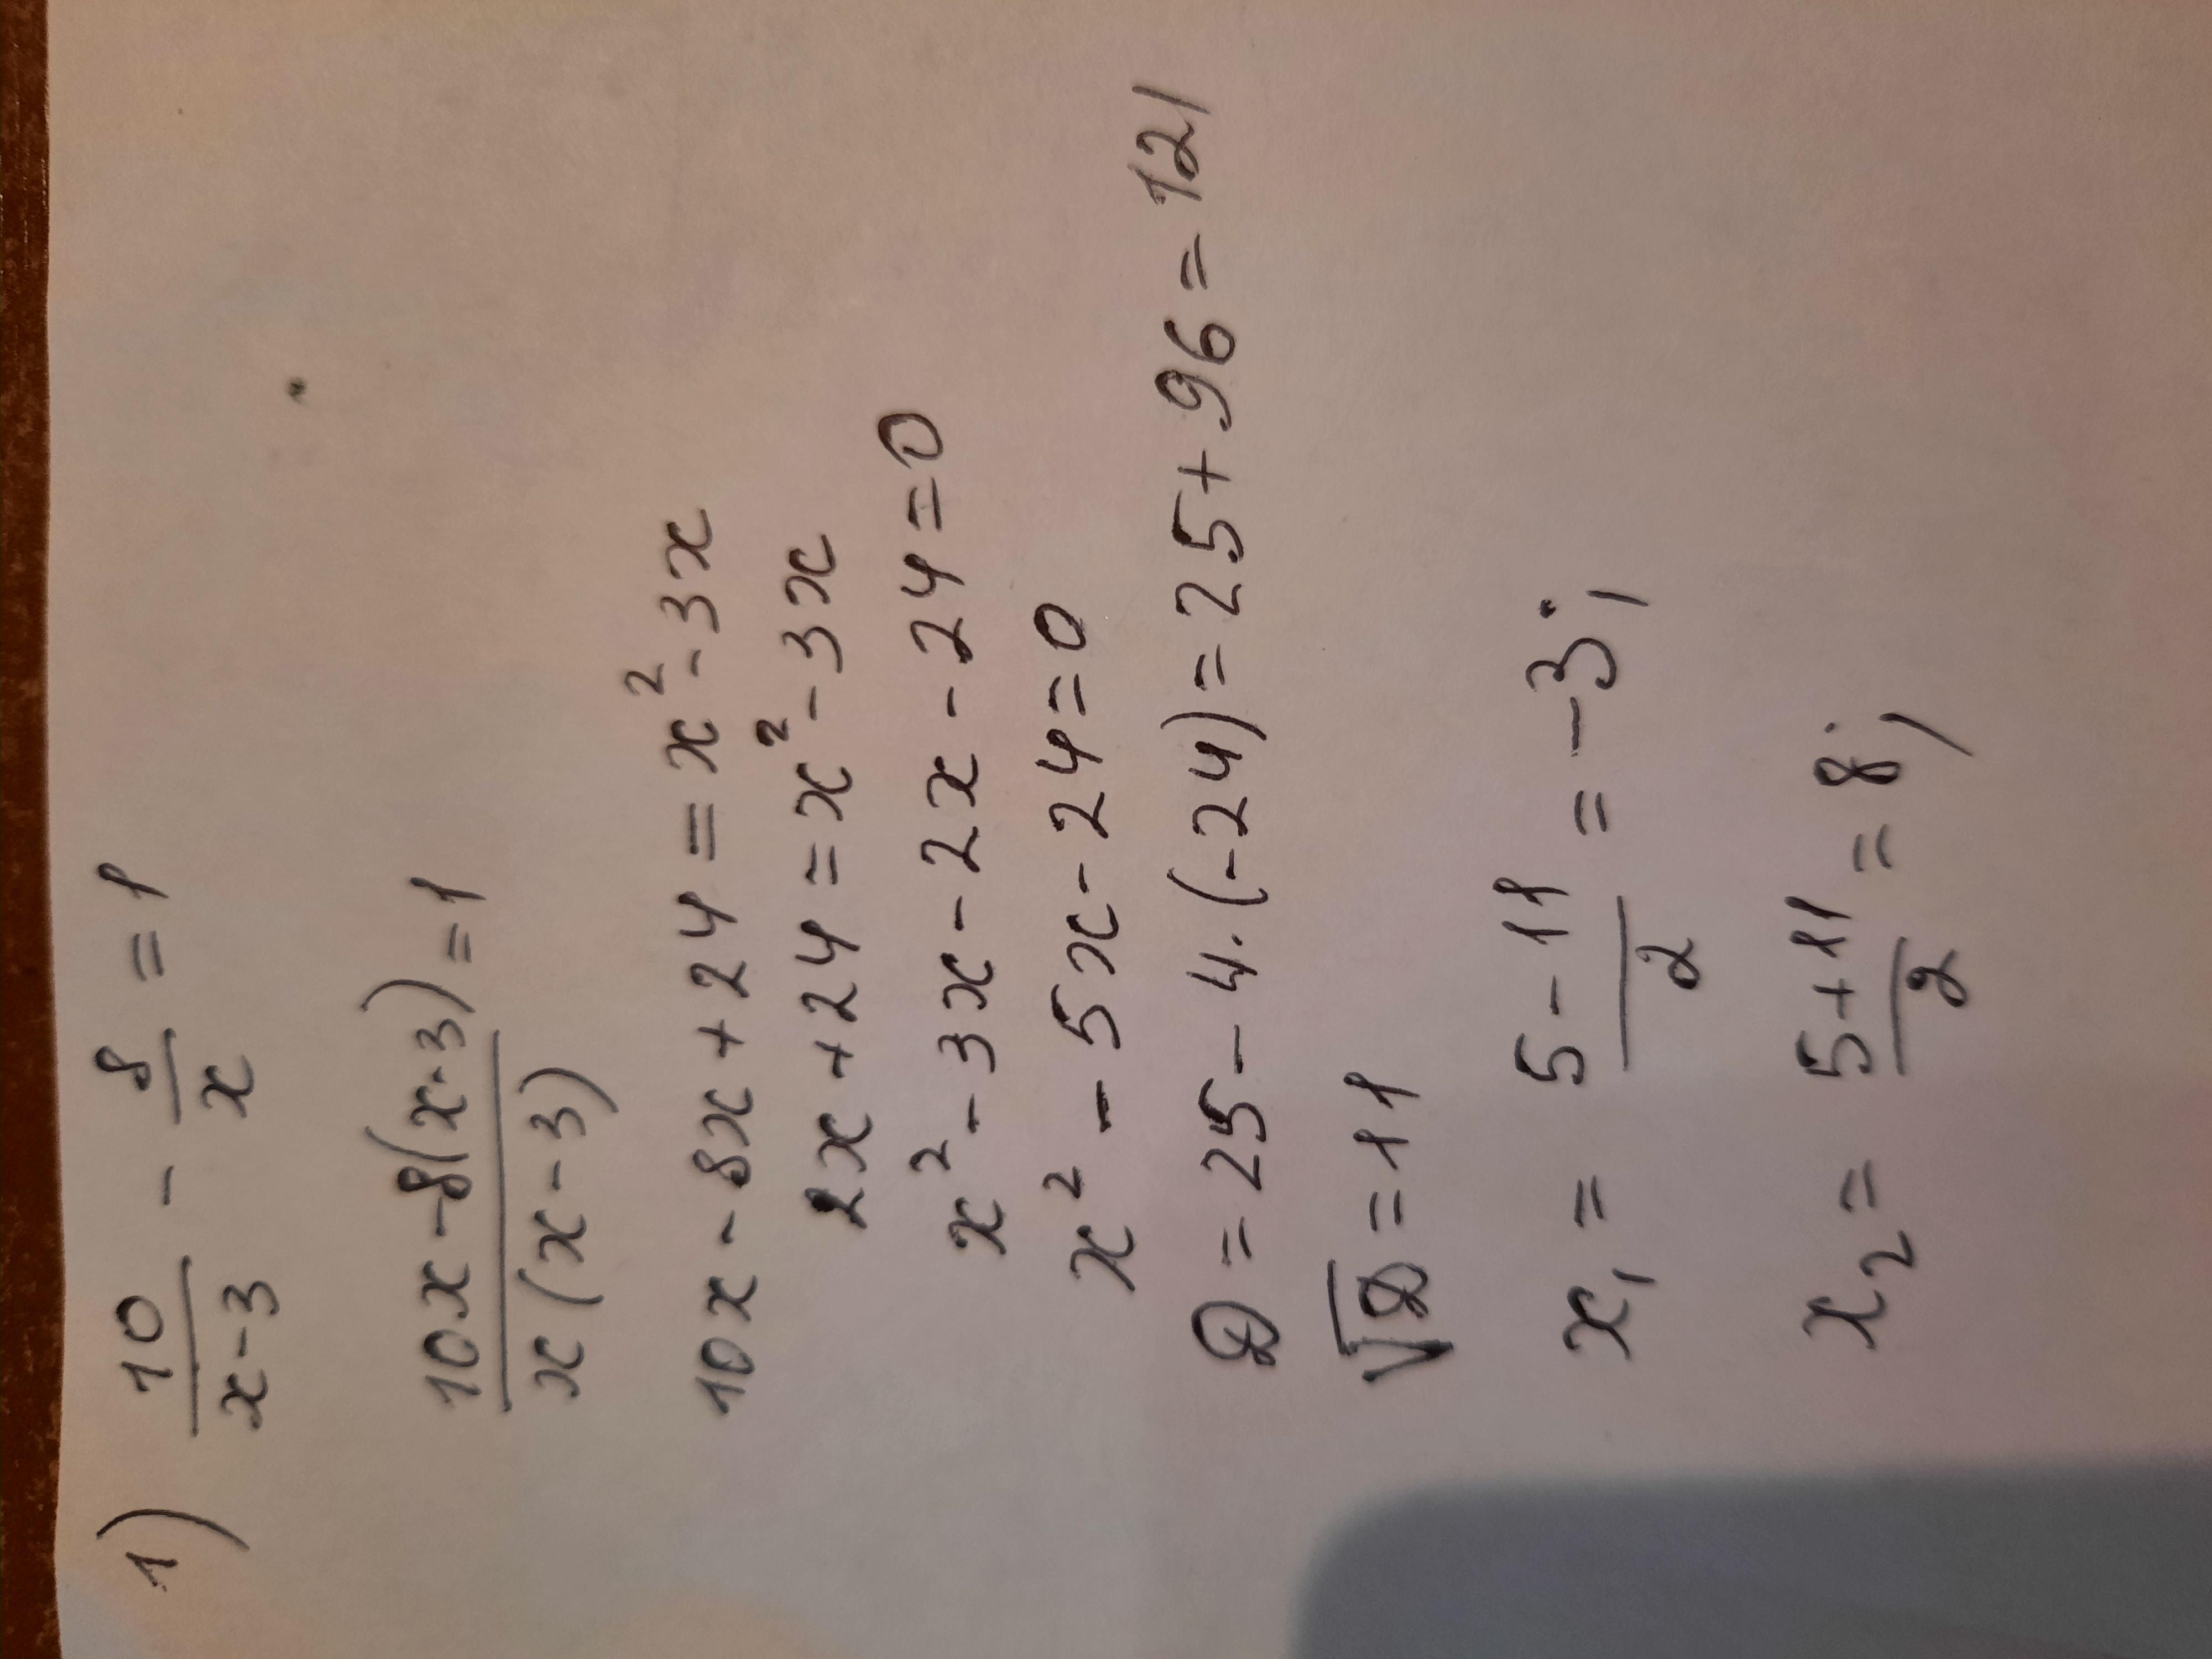 1) 10/(x-3) - 8/x = 1
(10x-8(x-3))/(x(x-3)) = 1
10x-8x+24=x²-3x
2x+24=x²-3x
x²-3x-2x-24=0
x²-5x-24=0
D=25-4·(-24)=25+96=121
√D=11
x₁=(5-11)/2=-3;
x₂=(5+11)/2=8;